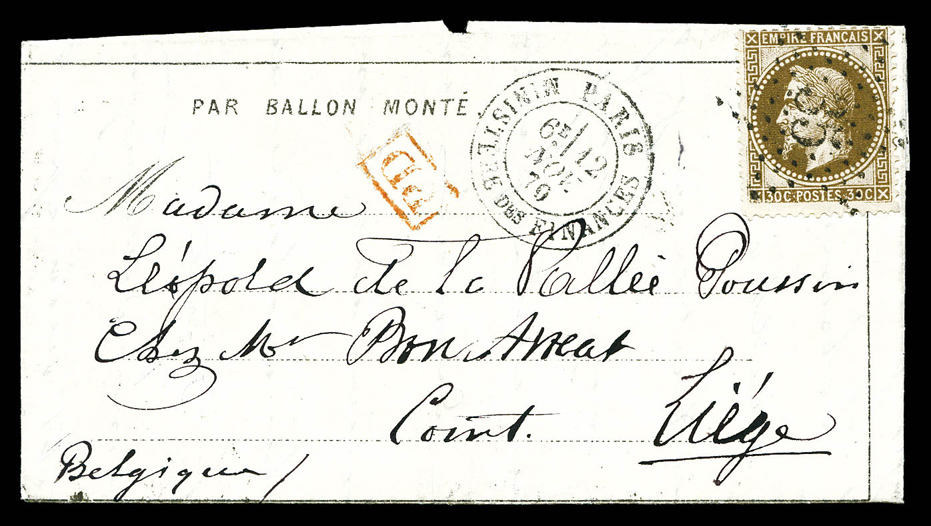 PAR BALLON MONTÉ
PD
PARIS
6E/ 12
NOV.
70
DES FINANCES
EMPIRE FRANÇAIS
30C·POSTES·30C
Madame
Léopold de la Vallée Poussin
Chez Mr
Coint. Liége
Belgique